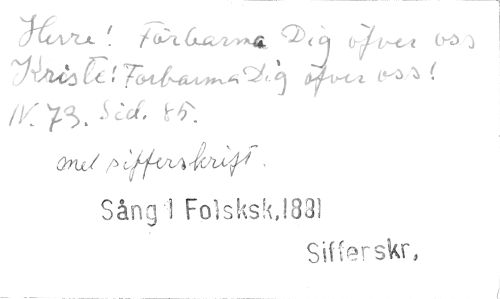 Herre! Förbarma Dig öfver oss
Kriste! Forbarma Dig öfver oss!
N. 73. Sid. 85.
med sifferskrift.
Sång i Folsksk,1881
Sifferskr,